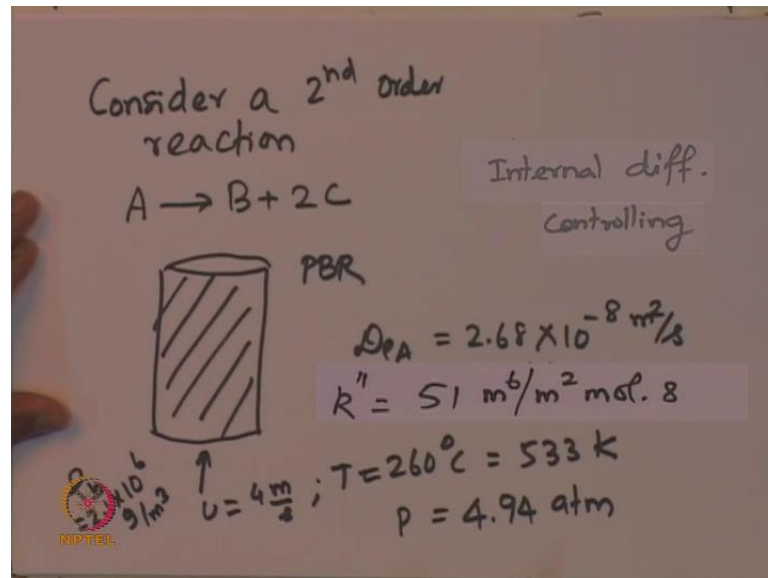 Consider a 2nd order
reaction
A → B + 2C
Internal diff.
Controlling
PBR
DeA = 2.68 × 10⁻⁸ m²/s
k" = 51 m⁶/m² mol. s
U = 4 m/s ; T = 260°C = 533 K
P = 4.94 atm
g/m³
NPTEL